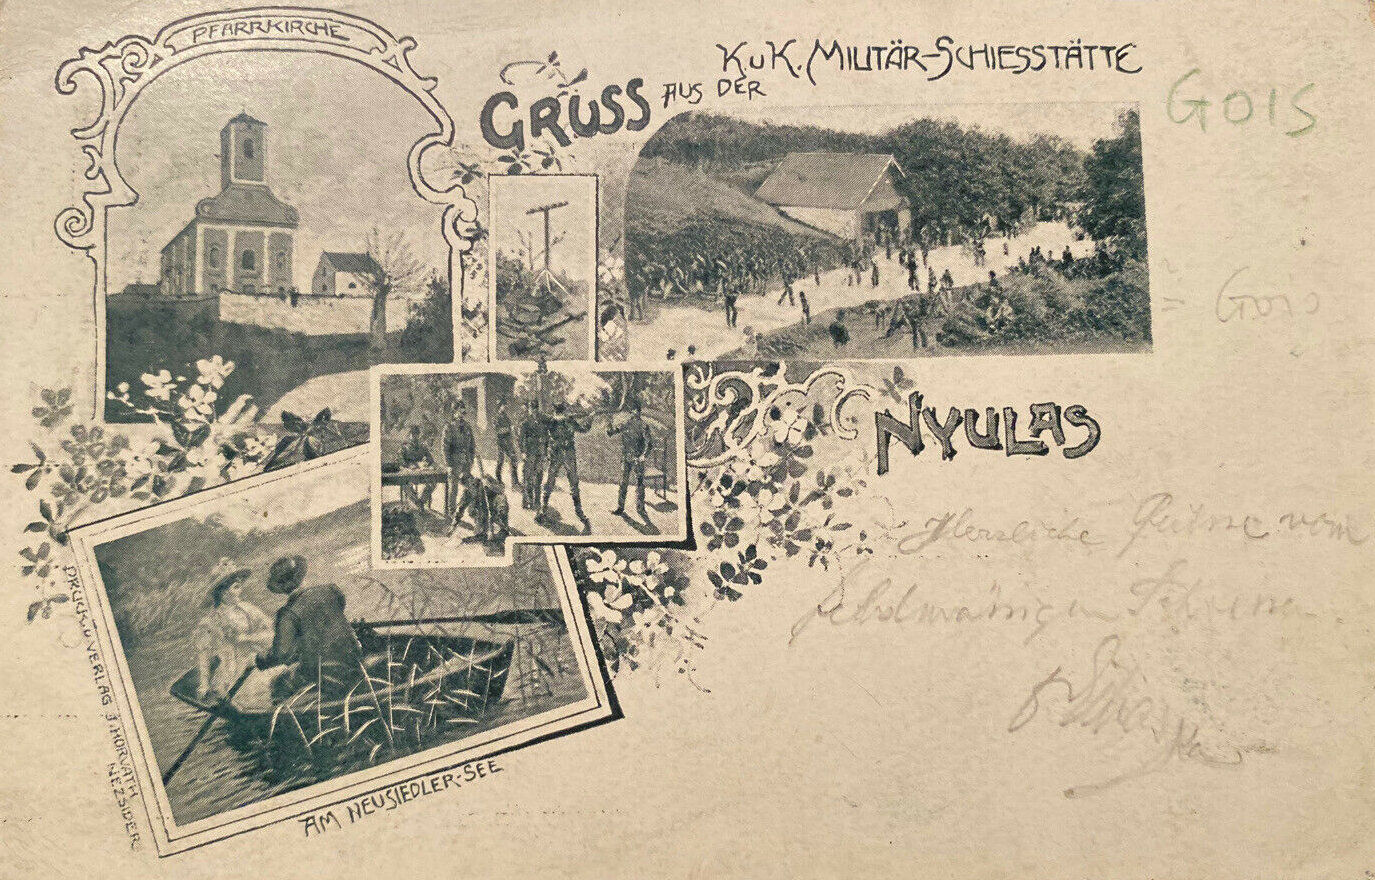 PFARRKIRCHE
GRUSS AUS DER
K. u K. MILITÄR-SCHIESSTÄTTE
GOIS
= Gois
NYULAS
Herzliche Grüsse vom
DRUCK U VERLAG J. HORVATH
NEZSIDER
AM NEUSIEDLER-SEE